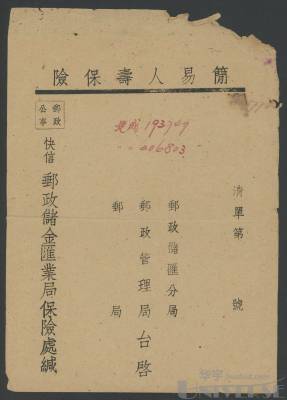 簡易人壽保險
清單第 號
郵政儲匯分局
郵政管理局台啓
郵 局
193749
006803
郵政公事
快信 郵政儲金匯業局保險處緘
華宇
UNIVERSE